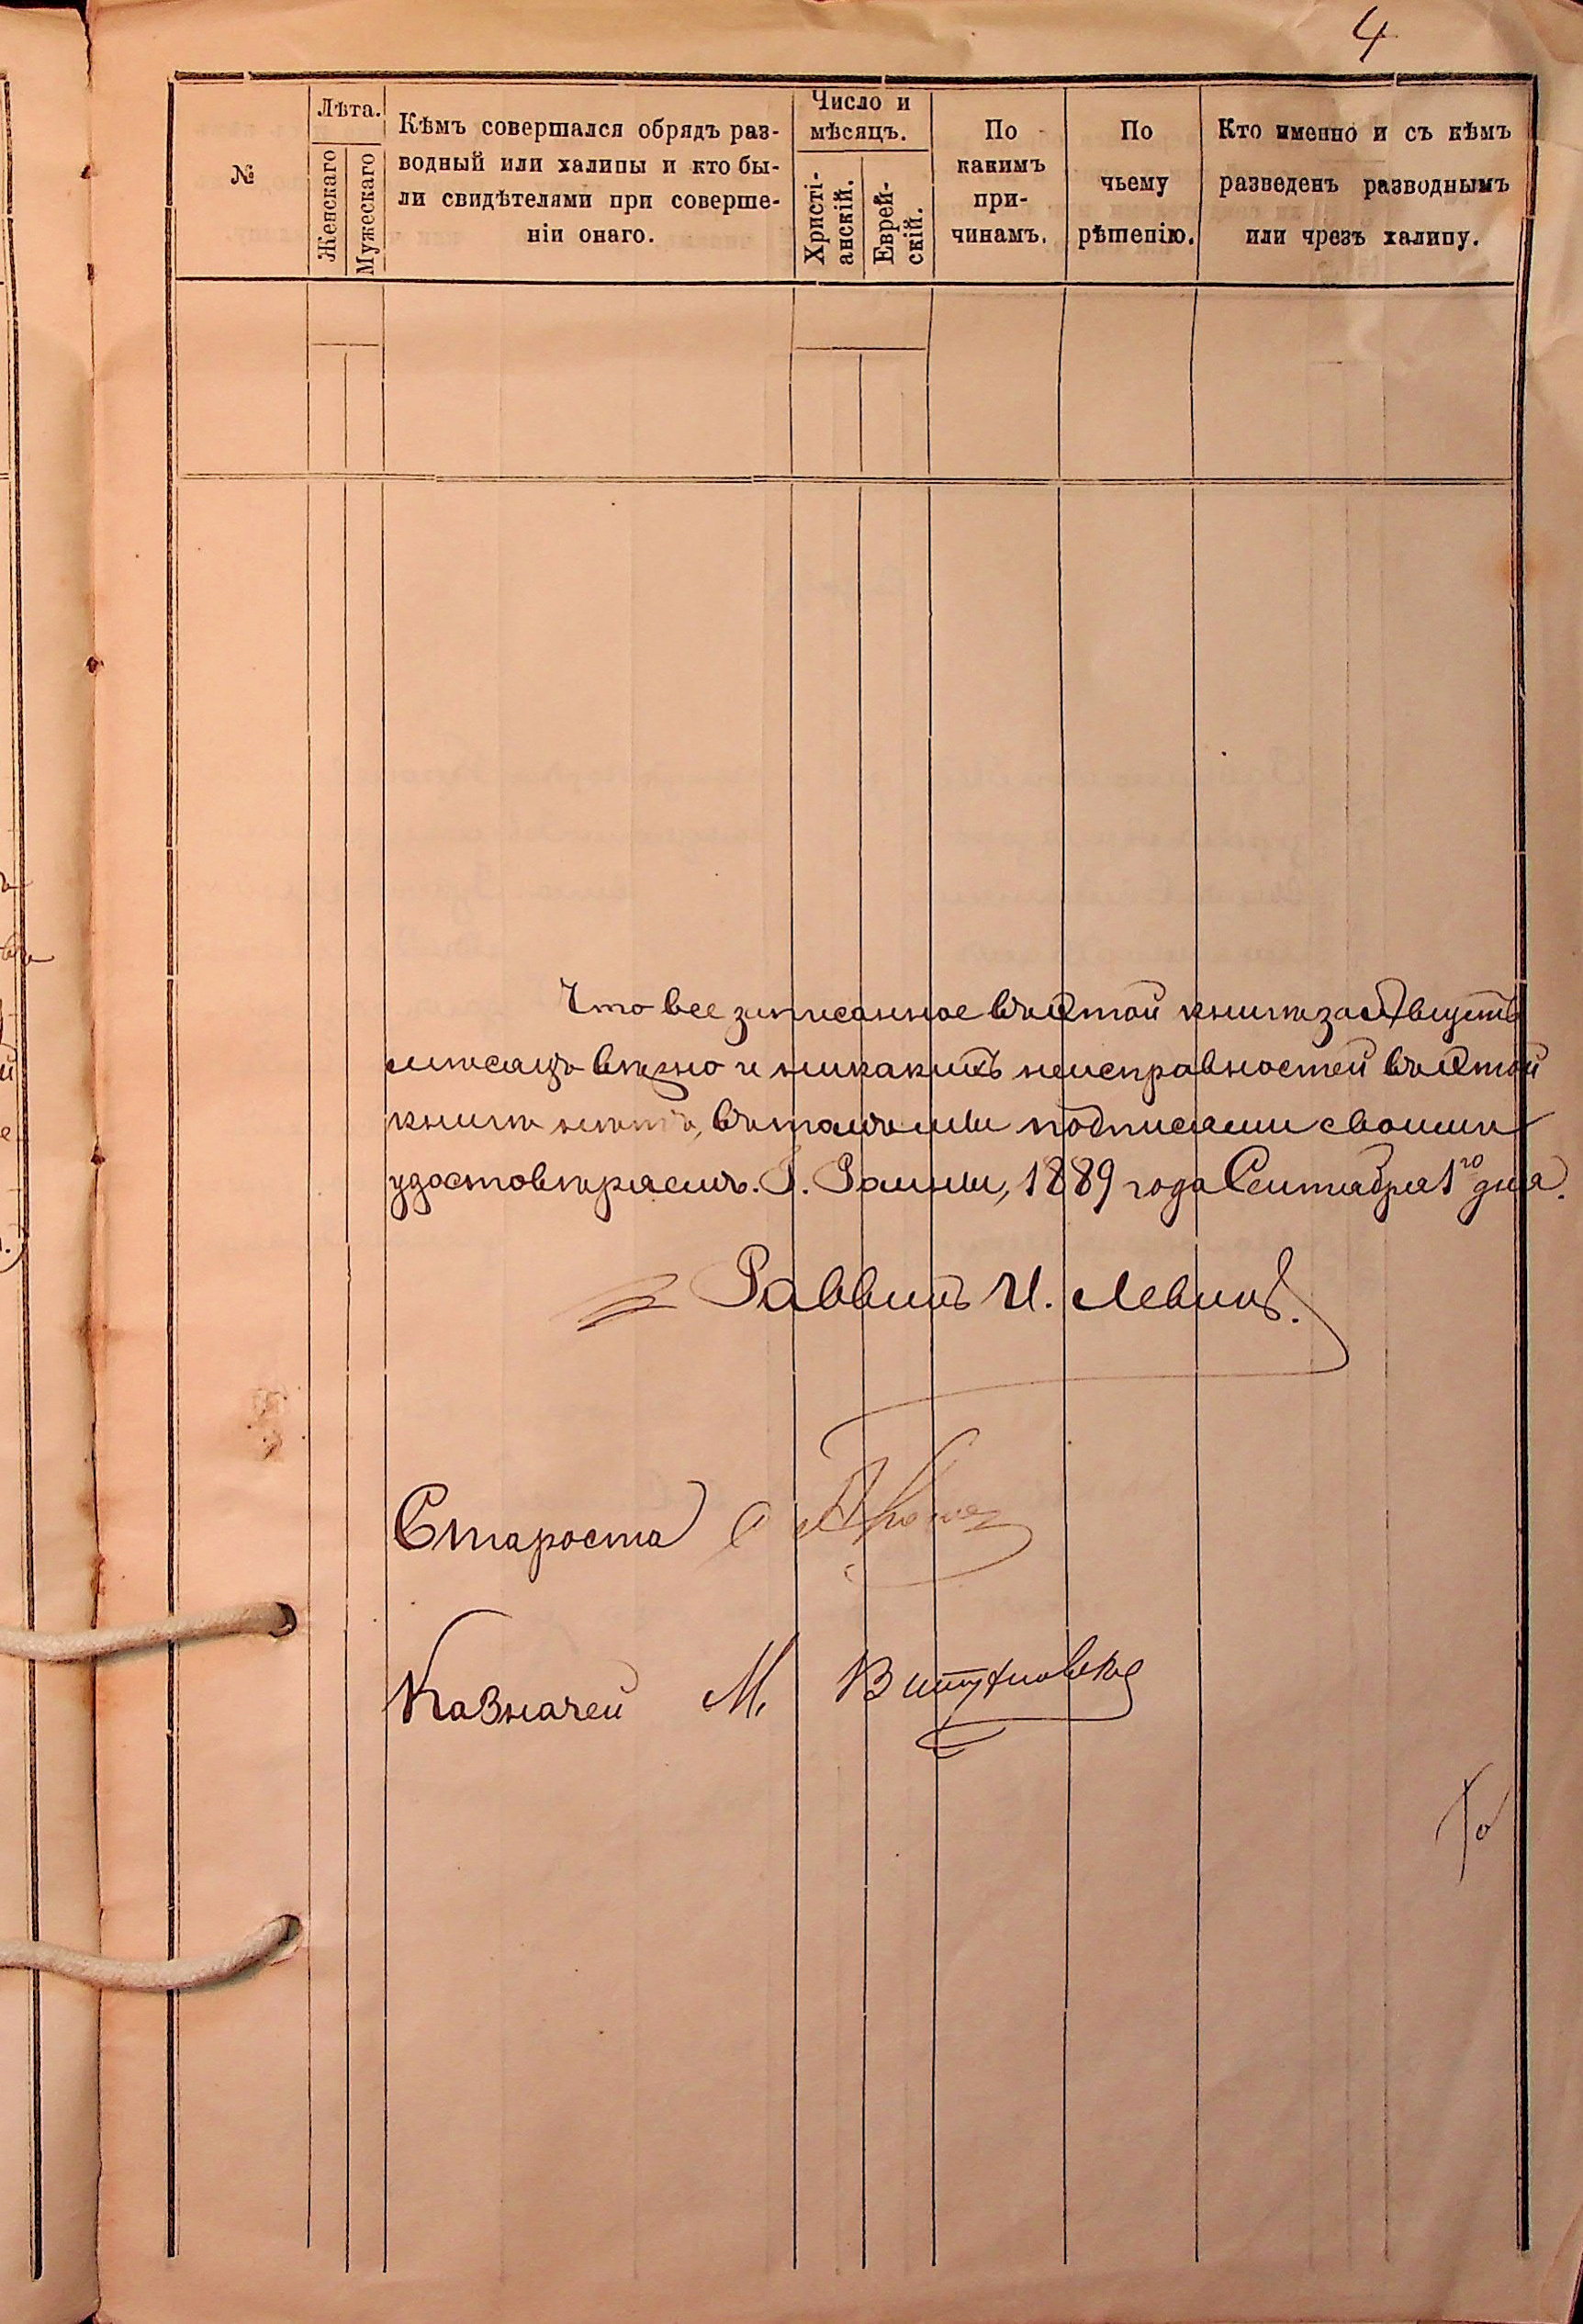 4
№
Лѣта.
Женскаго
Мужескаго
Кѣмъ совершался обрядъ раз-
водный или халипы и кто бы-
ли свидѣтелями при соверше-
ніи онаго.
Число и
мѣсяцъ.
Христі-
анскій.
Еврей-
скій.
По
какимъ
при-
чинамъ.
По
чьему
рѣшенію.
Кто именно и съ кѣмъ
разведенъ разводнымъ
или чрезъ халипу.
Что все записанное въ этой книгѣ за Августъ
мѣсяцъ вѣрно и никакихъ неисправностей въ этой
книгѣ нѣтъ, въ томъ мы подписами своими
удостовѣряемъ. Г. Ромны, 1889 года Сентября 1го дня.
Раввинъ И. Левинъ.
Староста
Казначей М.